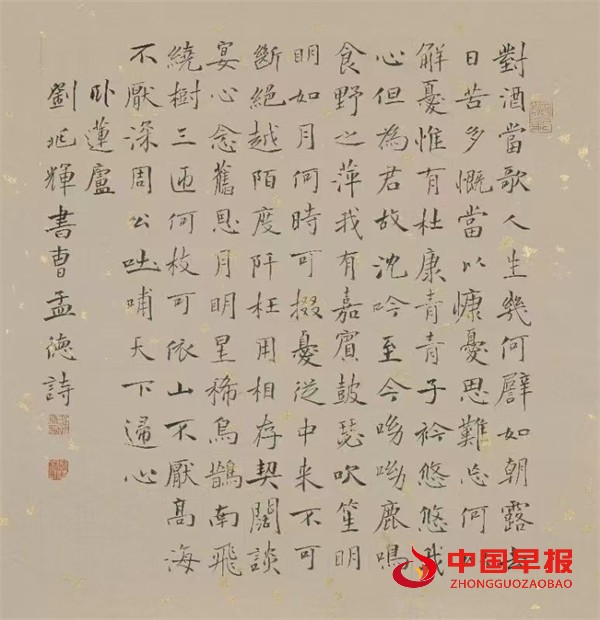 對酒當歌人生幾何譬如朝露去
日苦多慨當以慷憂思難忘何
解憂惟有杜康青青子衿悠悠我
心但為君故沈吟至今呦呦鹿鳴
食野之萍我有嘉賓鼓瑟吹笙明
明如月何時可掇憂從中来不可
斷絕越陌度阡枉用相存契闊談
宴心念舊恩月明星稀烏鵲南飛
繞樹三匝何枝可依山不厭高海
不厭深周公吐哺天下歸心
卧蓮廬
劉兆輝書曹孟德詩
中国早报
ZHONGGUOZAOBAO